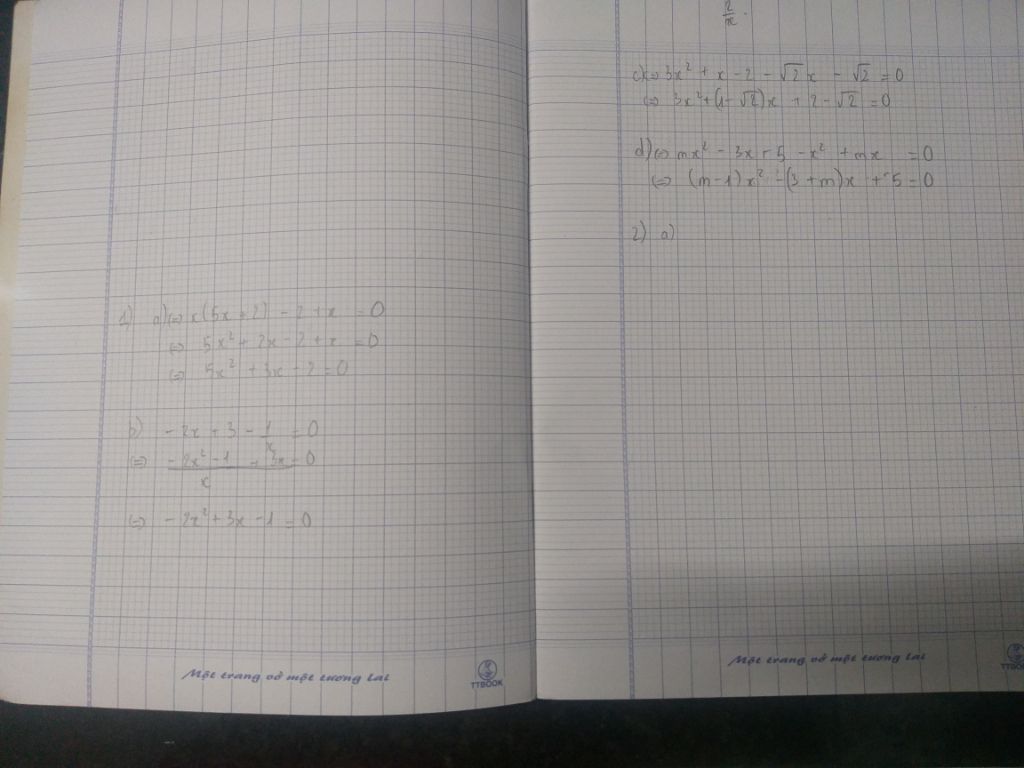 1) a) ⇔ x(5x + 2) - 2 + x = 0
⇔ 5x² + 2x - 2 + x = 0
⇔ 5x² + 3x - 2 = 0
b) - 2x + 3 - 1/x = 0
⇔ (- 2x² - 1 + 3x)/x = 0
⇔ - 2x² + 3x - 1 = 0
Một trang vở một tương lai
TTBOOK
c) ⇔ 3x² + x - 2 - √2x - √2 = 0
⇔ 3x² + (1 - √2)x + 2 - √2 = 0
d) ⇔ mx² - 3x + 5 - x² + mx = 0
⇔ (m - 1)x² - (3 + m)x + 5 = 0
2) a)
Một trang vở một tương lai